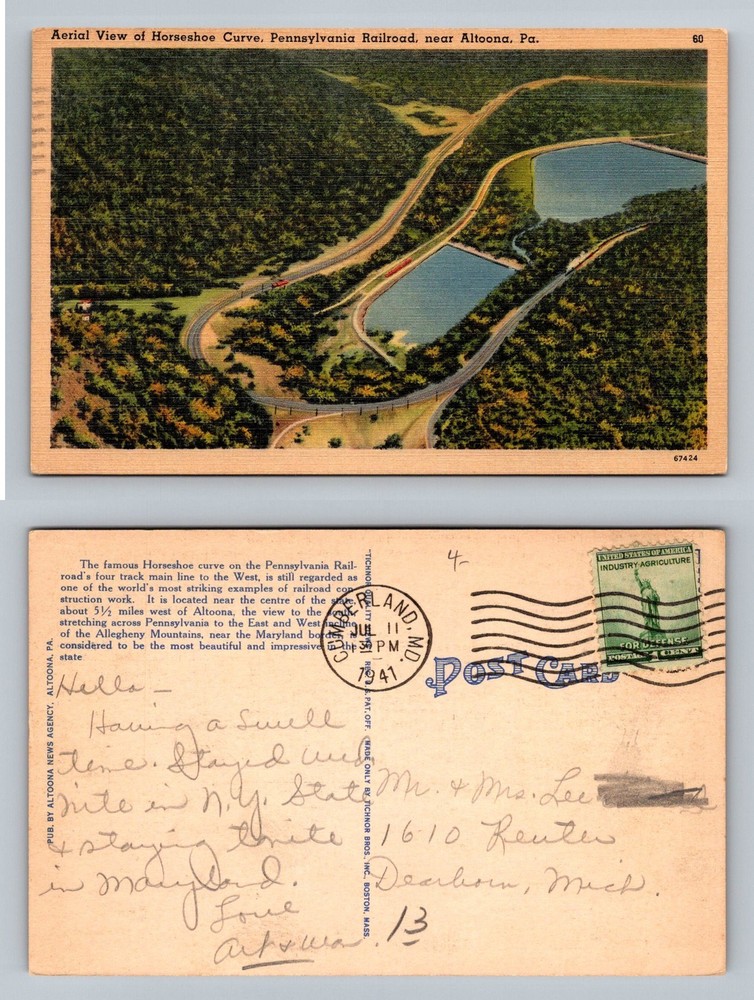 Aerial View of Horseshoe Curve, Pennsylvania Railroad, near Altoona, Pa.
60
67424
The famous Horseshoe curve on the Pennsylvania Rail-
road's four track main line to the West, is still regarded as
one of the world's most striking examples of railroad con
struction work. It is located near the centre of the state,
about 5½ miles west of Altoona, the view to the south,
stretching across Pennsylvania to the East and West
of the Allegheny Mountains, near the Maryland
considered to be the most beautiful and impressive in the
state
PUB. BY ALTOONA NEWS AGENCY, ALTOONA, PA.
"TICHNOR QUALITY REG. U.S. PAT. OFF. MADE ONLY BY TICHNOR BROS., INC., BOSTON, MASS.
4-
CUMBERLAND, MD.
JUL 11
PM
1941
UNITED STATES OF AMERICA
INDUSTRY-AGRICULTURE
FOR DEFENSE
POSTAGE 1 CENT
POST CARD
Hello -
Having a swell
time. Stayed Wed
nite in N.Y. State
& staying tonite
in Maryland.
Love
Art &
Mr. & Mrs. Lee
1610 Reuter
Dearborn, Mich.
13